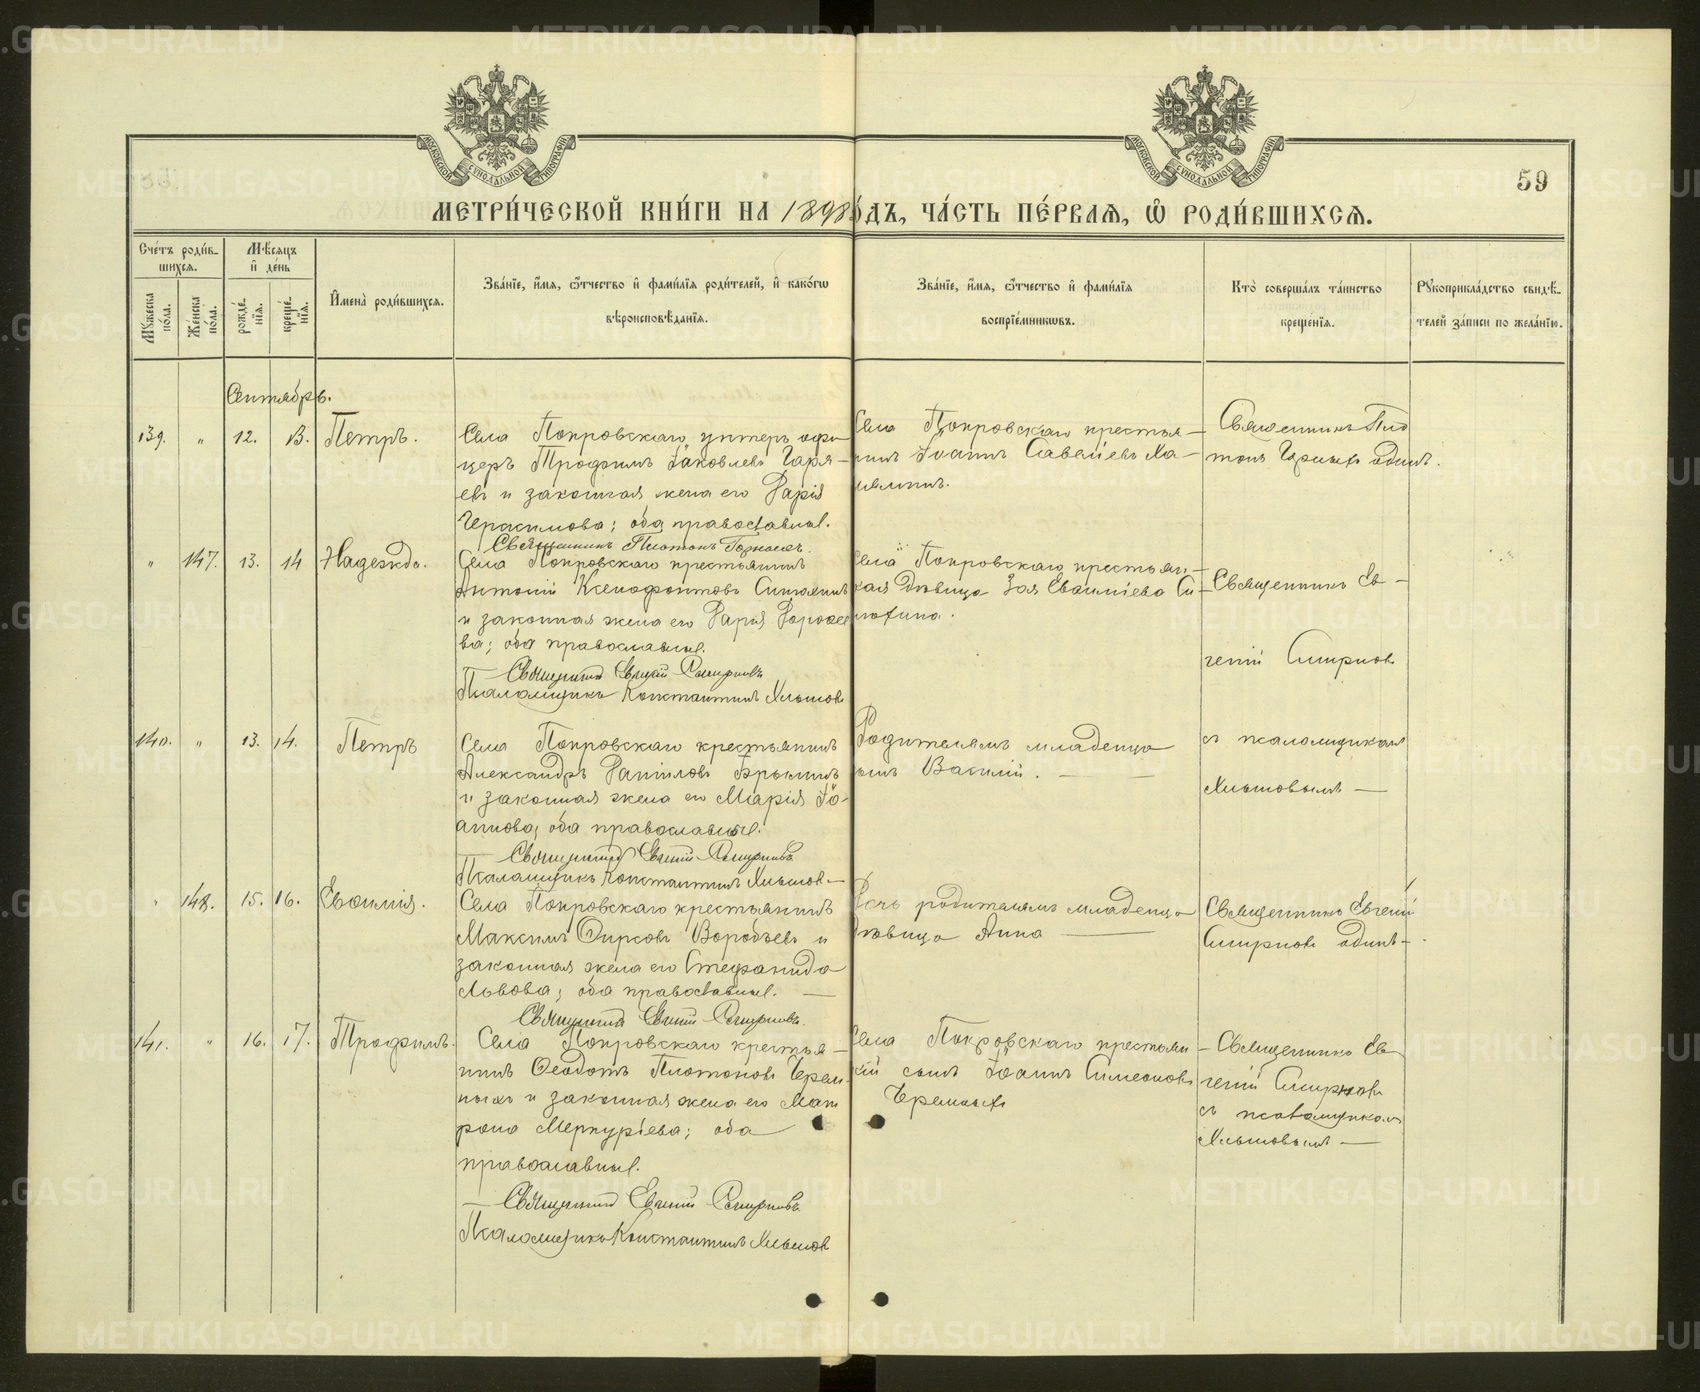 МЕТРИ́ЧЕСКОЙ КНИ́ГИ НА 1898 го́дъ, ЧА́СТЬ ПЕ́РВАЯ, Ѡ РОДИ́ВШИХСЯ.
59
Сче́тъ роди́в-
шихся.
Му́жеска
по́ла.
Же́нска
по́ла.
Мѣ́сяцъ
и де́нь
рожде́-
нія.
креще́-
нія.
Имена̀ роди́вшихся.
Зва́нїе, и́мя, ѻ́тчество и фами́лїя роди́телей, и како́гѡ
вѣроисповѣ́данїя.
Зва́нїе, и́мя, ѻ́тчество и фами́лїя
воспрїе́мникѡвъ.
Кто̀ соверша́лъ та́инство
креще́нїя.
Рꙋкоприкла́дство свидѣ́-
телей за́писи по жела́нїю.
Сентябрь.
139. " 12. 13. Петръ.
Села Покровскаго унтеръ офи
церъ Трофимъ Іаковлевъ Царя-
евъ и законная жена его Марія
Герасимова; оба православные.
Священникъ Платонъ Горныхъ.
Села Покровскаго крестья-
нинъ Іоаннъ Савеліевъ Ха-
Священникъ Пла
тонъ Горныхъ одинъ.
" 147. 13. 14 Надежда.
Села Покровскаго крестьянинъ
Антоній Ксенофонтовъ
и законная жена его Марія
ва; оба православные.
Священникъ Евгеній Смирновъ
Псаломщикъ Константинъ Хлыновъ
Села Покровскаго крестьян-
ская дѣвица Зоя Евѳиміева Си-
Священникъ Ев-
геній Смирновъ
140. " 13. 14. Петръ
Села Покровскаго крестьянинъ
Александръ Брылинъ
и законная жена его Марія Іо-
аннова; оба православные.
Священникъ Евгеній Смирновъ
Псаломщикъ Константинъ Хлыновъ
Родителямъ младенца
сынъ Василій.
съ псаломщикомъ
Хлыновымъ
" 148. 15. 16. Евѳимія.
Села Покровскаго крестьянинъ
Максимъ Ѳирсовъ Воробьевъ и
законная жена его Стефанида
Львова; оба православные.
Священникъ Евгеній Смирновъ.
Дочь родителямъ младенца
дѣвица Анна
Священникъ Евгеній
Смирновъ одинъ
141. " 16. 17. Трофимъ.
Села Покровскаго крестья-
нинъ Ѳеодотъ Платоновъ Черем-
ныхъ и законная жена его Мат
рона Меркуріева; оба
православные.
Священникъ Евгеній Смирновъ.
Псаломщикъ Константинъ Хлыновъ
Села Покровскаго крестьян
скій сынъ Іоаннъ Симеоновъ
Черемныхъ
Священникъ Ев
геній Смирновъ
съ псаломщикомъ
Хлыновымъ